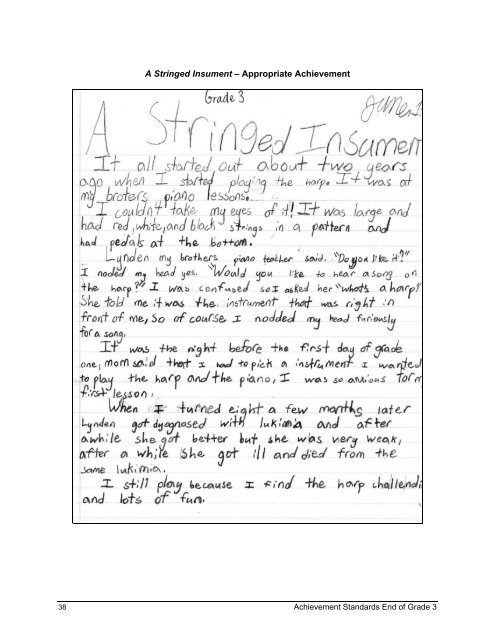 A Stringed Insument – Appropriate Achievement
Grade 3
James
A Stringed Insumen
It all started out about two years
ago when I started playing the harp. It was at
my broters piano lessons.
I couldn't take my eyes of it! It was large and
had red, white, and black strings in a pattern and
had pedals at the bottom.
Lynden my brothers piano teacher said. "Do you like it?"
I noded my head yes. "Would you like to hear a song on
the harp?" I was confused so I asked her "what's a harp?"
She told me it was the instrument that was right in
front of me, so of course I nodded my head furiously
for a song.
It was the night before the first day of grade
one, mom said that I had to pick a instrument I wanted
to play the harp and the piano, I was so anxious for m
first lesson.
When I turned eight a few months later
Lynden got dyagnosed with lukimia and after
awhile she got better but she was very weak,
after a while she got ill and died from the
same lukimia.
I still play because I find the harp challendi
and lots of fun.
38
Achievement Standards End of Grade 3